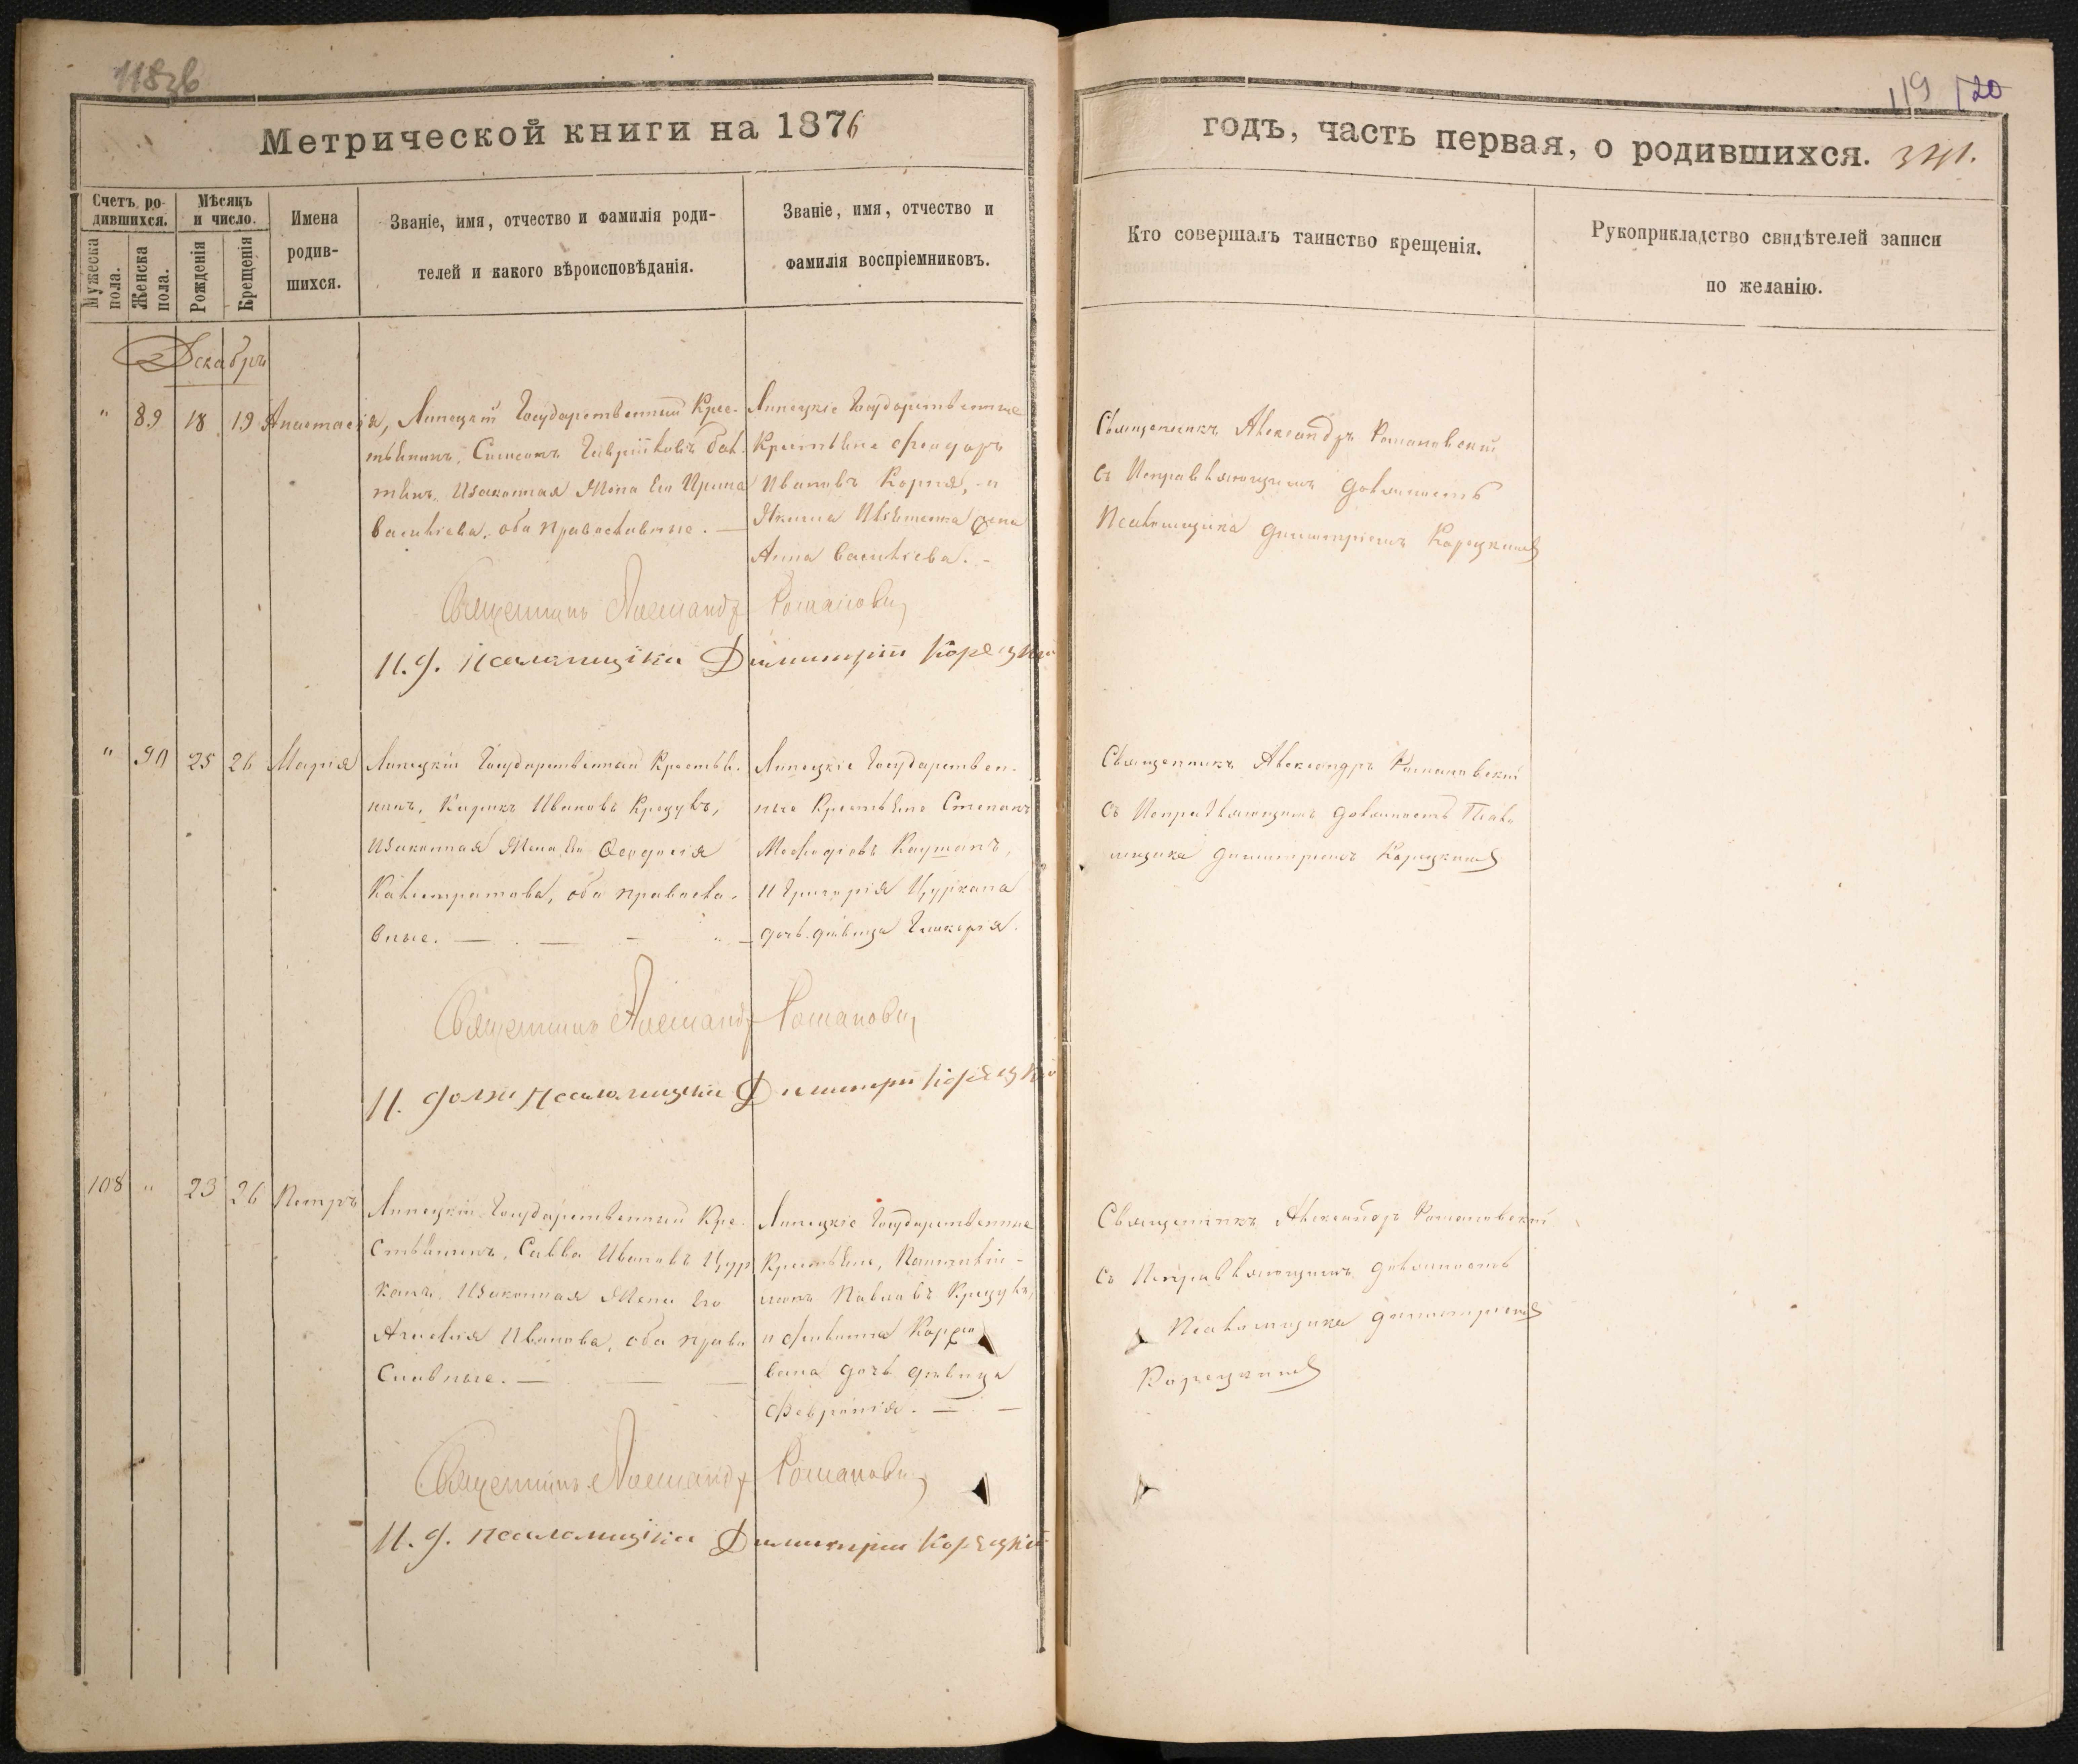 118 об
119 120
Метрической книги на 1876
годъ, часть первая, о родившихся.
Счетъ ро-
дившихся.
Мужеска пола.
Женска пола.
Мѣсяцъ
и число.
Рожденія
Крещенія
Имена
родив-
шихся.
Званіе, имя, отчество и фамилія роди-
телей и какого вѣроисповѣданія.
Званіе, имя, отчество и
фамилія воспріемниковъ.
Кто совершалъ таинство крещенія.
Рукоприкладство свидѣтелей записи
по желанію.
Декабрь
" 89 18 19 Анастасія,
Липецкій Государственный Крес-
тьянинъ, Гавріиловъ
Изаконная Жена Его Ирина
Васильева, оба православные. —
Липецкіе Государственные
Крестьяне Ѳеодоръ
Ивановъ Корня, и
Якима жена
Анна Васильева. -
Священникъ Александръ Романовскій
съ Исправляющимъ должность
Псаломщика Димитріемъ Корецкимъ
Священникъ Александръ Романовскій
И. д. Псаломщика Димитрій Корецкій
" 90 25 26 Марія
Липецкій Государственный Крестья-
нинъ, Ивановъ Крецулъ,
Изаконная Жена Его Ѳеодосія
Калистратова, оба правосла-
вные. —
Липецкіе Государствен-
ные Крестьяне Стефанъ
Меѳодіевъ Кауманъ,
и Григорія Цуркана
дочь девица Гликерія.
Священникъ Александръ Романовскій
съ Исправляющимъ должность Псало-
мщика Димитріемъ Корецкимъ
Священникъ Александръ Романовскій
И. долж Псаломщика Димитрій Корецкій
108 " 23 26 Петръ
Липецкій Государственный Кре-
стьянинъ, Савва Ивановъ Цур
канъ, Изаконная Жена Его
Агафія Иванова, оба право
славные. —
Липецкіе Государственные
Крестьяне, Пантелій-
монъ Павловъ Крецулъ,
и Филиппа
дочь девица
Февронія. —
Священникъ Александръ Романовскій
съ Исправляющимъ должность
Псаломщика Димитріемъ
Корецкимъ
Священникъ Александръ Романовскій
И. д. псаломщика Димитрій Корецкій